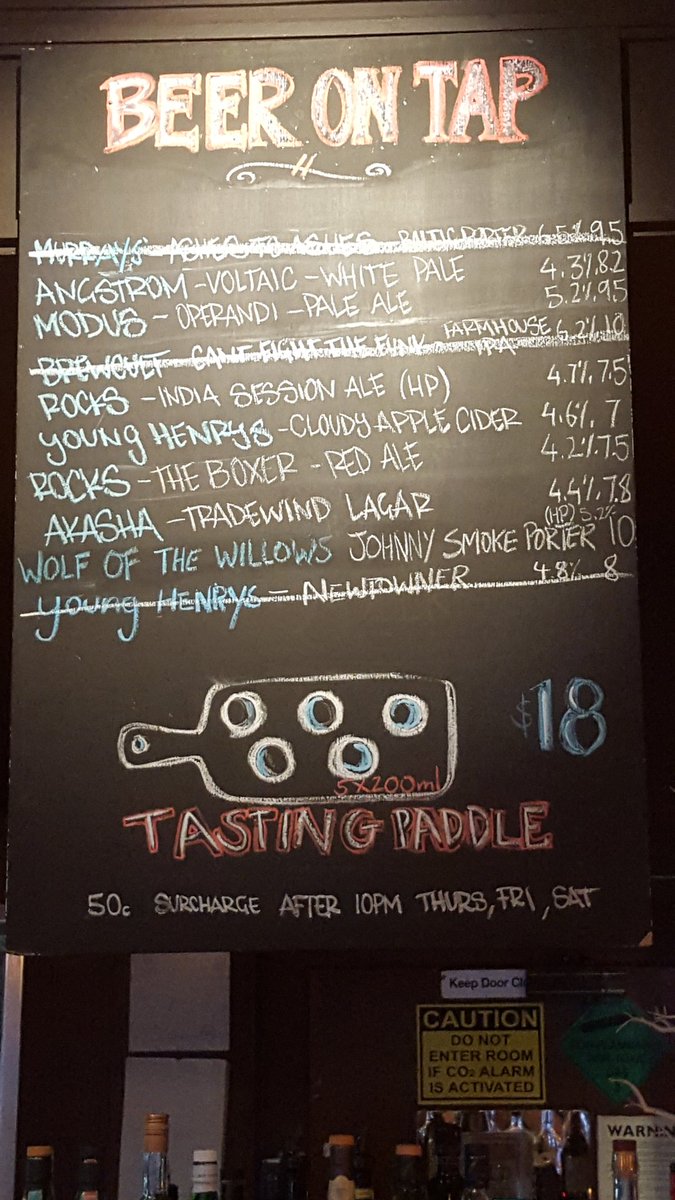 BEER ON TAP
MURRAYS - ASHES TO ASHES - BALTIC PORTER 6.5% 9.5
ANGSTROM - VOLTAIC - WHITE PALE 4.3% 8.2
MODUS - OPERANDI - PALE ALE 5.2% 9.5
BREWCULT - CANT FIGHT THE FUNK - FARMHOUSE IPA 6.2% 10
ROCKS - INDIA SESSION ALE (HP) 4.7% 7.5
YOUNG HENRYS - CLOUDY APPLE CIDER 4.6% 7
ROCKS - THE BOXER - RED ALE 4.2% 7.5
AKASHA - TRADEWIND LAGAR 4.4% 7.8
WOLF OF THE WILLOWS JOHNNY SMOKE PORTER (HP) 5.2% 10
YOUNG HENRYS - NEWTOWNER 4.8% 8
$18
5x200ml
TASTING PADDLE
50c SURCHARGE AFTER 10PM THURS, FRI, SAT
Keep Door
CAUTION
DO NOT
ENTER ROOM
IF CO2 ALARM
IS ACTIVATED